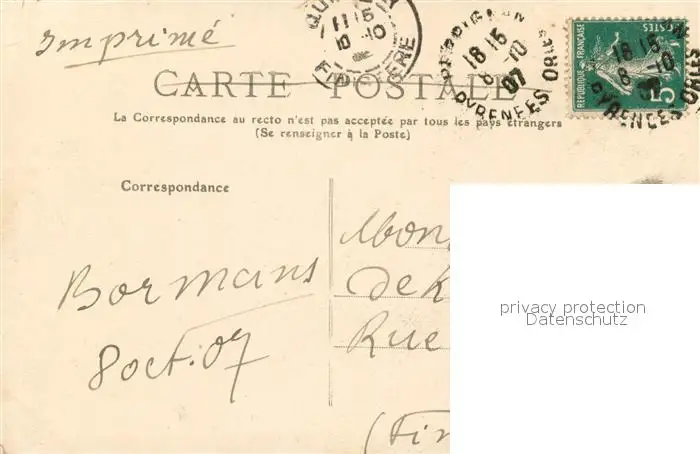 Imprimé
11 15
10 -10
PERPIGNAN
18 15
8 -10
07
PYRENEES ORIES
REPUBLIQUE FRANÇAISE
POSTES
5
18 15
8 -10
PYRENEES ORIES
CARTE POSTALE
La Correspondance au recto n'est pas acceptée par tous les pays étrangers
(Se renseigner à la Poste)
Correspondance
Bormans
8 oct. 07
Mon
de K
Rue
(Fin
privacy protection
Datenschutz